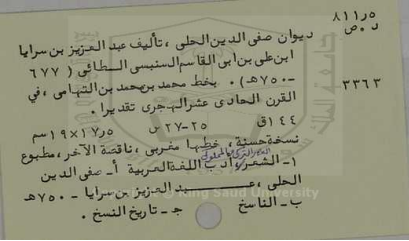 ٨١١٫٥
د . ص
ديوان صفى الدين الحلى ، تأليف عبد العزيز بن سرايا
ابن على بن ابى القاسم السنبسى الطائى ( ٦٧٧
٣٣٦٣
-٧٥٠هـ ) . بخط محمد بن محمد بن التهامى ، في
القرن الحادى عشر الهجرى تقديرا .
١٤٤ق ٢٥-٢٧س ١٧٫٥×١٩سم
نسخة حسنة ، خطها مغربى ، ناقصة الآخر ، مطبوع
١- الشعر ، أدب اللغة العربية أ- صفى الدين
الحلى ، عبد العزيز بن سرايا - ٧٥٠هـ
ب- الناسخ ج- تاريخ النسخ .
King Saud University